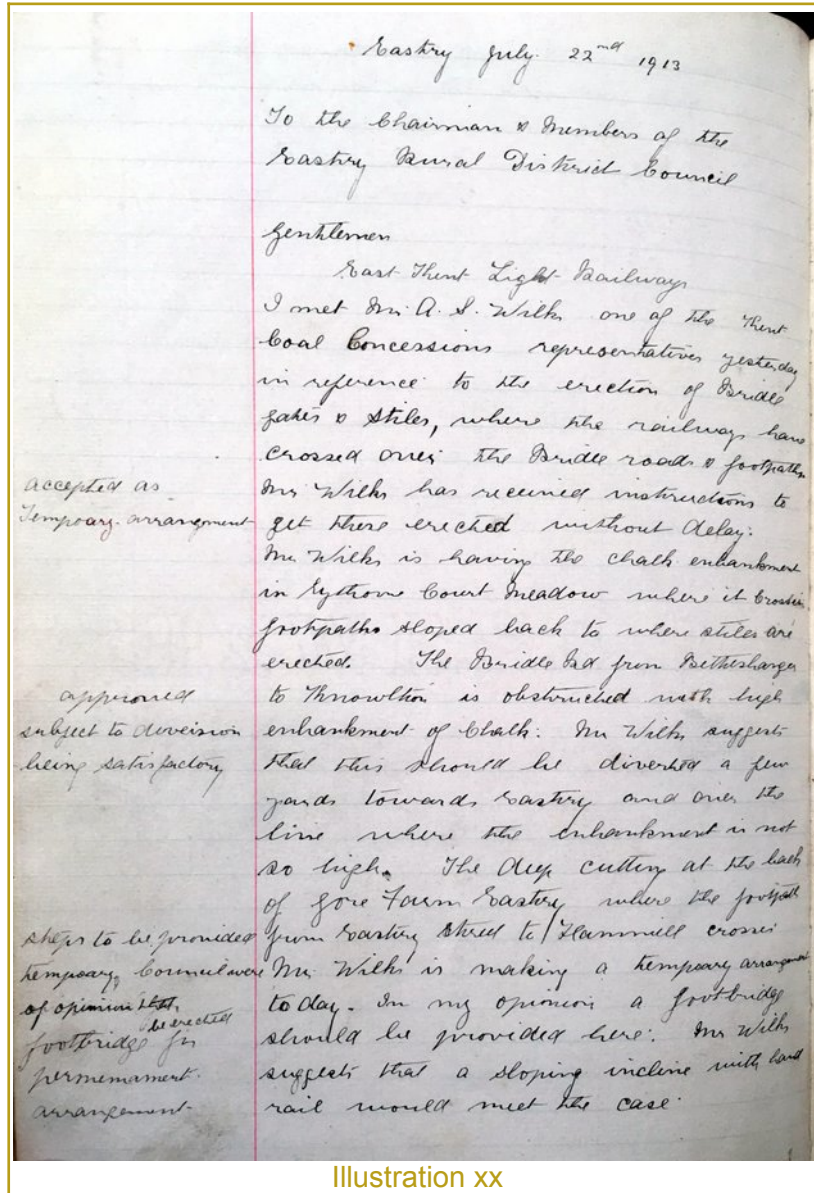 Eastry July 22nd 1913
To the Chairman & Members of the
Eastry Rural District Council
Gentlemen
East Kent Light Railways
I met Mr. A. S. Wilks one of the Kent
Coal Concessions representatives yesterday
in reference to the erection of Bridle
gates & Stiles, where the railways have
crossed over the Bridle roads & footpaths
Mr Wilks has received instructions to
get these erected without delay.
Mr Wilks is having the chalk enbankment
in Eythorne Court Meadow where it crosses
footpaths sloped back to where stiles are
erected. The Bridle Rd from Betteshanger
to Knowlton is obstructed with high
enbankment of Chalk. Mr Wilks suggests
that this should be diverted a few
yards towards Eastry and over the
line where the enbankment is not
so high. The deep cutting at the back
of Gore Farm Eastry where the footpath
from Eastry Street to Hammill crosses
Mr. Wilks is making a tempoary arrangement
today. In my opinion a footbridge
should be provided here. Mr Wilks
suggests that a sloping incline with hand
rail would meet the case
accepted as
Tempoary arrangement
approved
subject to diversion
being satisfactory
steps to be provided
tempoary, Council were
of opinion that
footbridge be erected for
permemament
arrangement
Illustration xx